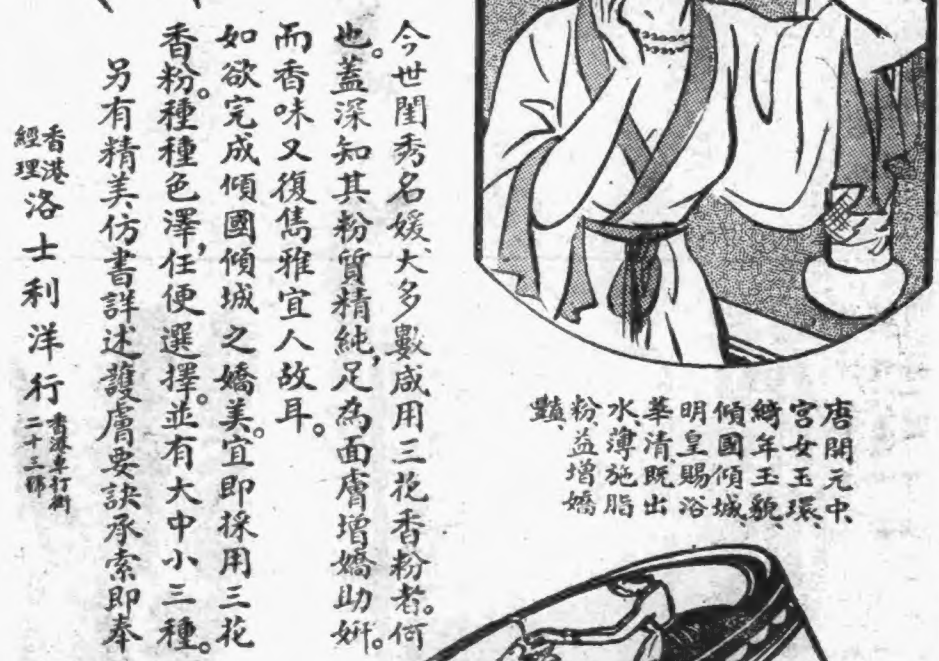 唐開元中、
宮女玉環、
綺年玉貌、
傾國傾城、
明皇賜浴
華清既出
水、薄施脂
粉、益增嬌
豔、
今世閨秀名媛、大多數咸用三花香粉者。何
也。蓋深知其粉質精純、足為面膚增嬌助妍。
而香味又復雋雅宜人故耳。
如欲完成傾國傾城之嬌美。宜即採用三花
香粉。種種色澤、任便選擇。並有大中小三種。
另有精美仿書詳述護膚要訣承索即奉
香港
經理
洛士利洋行
香港卑打街
二十三號